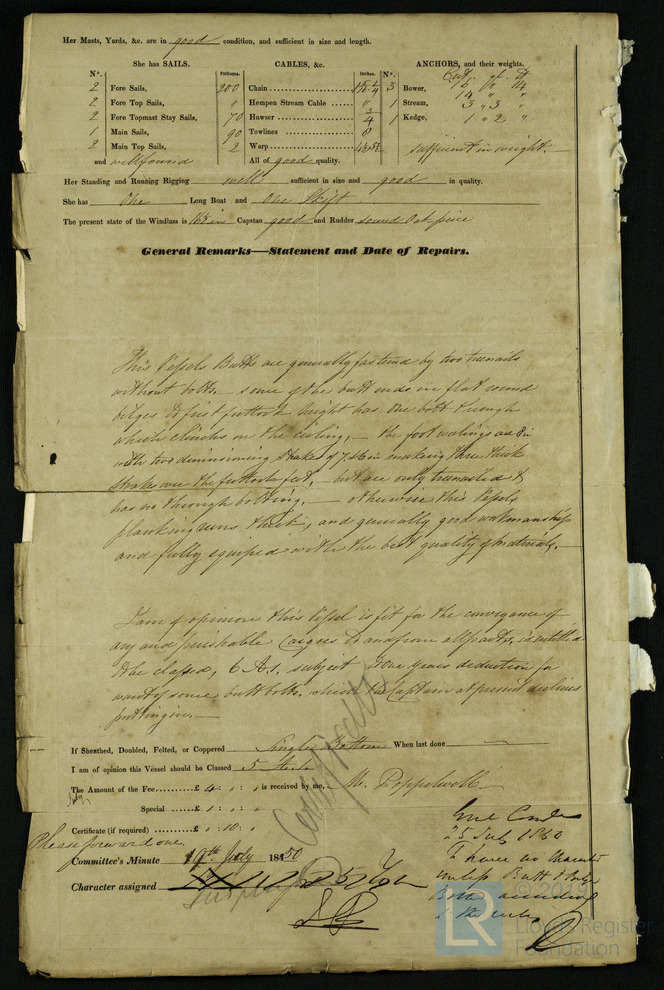 Her Masts, Yards, &c. are in good condition, and sufficient in size and length.
She has SAILS.
CABLES, &c.
ANCHORS, and their weights.
N°. Fathoms. Inches. N°.
2 Fore Sails, 200 Chain 3 Bower, 14
2 Fore Top Sails, " Hempen Stream Cable " 14 " "
2 Fore Topmast Stay Sails, 70 Hawser 1 Stream, 3 " 3 "
1 Main Sails, 90 Towlines 8 1 Kedge, 1 " 2 "
2 Main Top Sails, Warp
and well found All of good quality. sufficient in weight.
Her Standing and Running Rigging well sufficient in size and good in quality.
She has One Long Boat and One Skiff
The present state of the Windlass is Capstan good and Rudder sound Oak piece
General Remarks—Statement and Date of Repairs.
This Vessels Butts are generally fastened by two treenails
without bolts,— some of the butt ends in flat round
bilges to first futtock height has one bolt through
which clinchs on the ceiling,— the foot walings are 8 in
with two diminishing strakes of 7 & 6 in making three thick
strakes over the futtocks feet,— but are only treenailed &
has no through bolting,— otherwise this Vessels
planking runs thick, and generally good workmanship
and fully equiped with the best quality of materials.—
I am of opinion this Vessel is fit for the conveyance of
any and perishable Cargoes to and from all parts, is entitled
to be classed, 6 A1, subject to one years deduction for
want of some butt bolts, which the Captain at present declines
putting in.—
If Sheathed, Doubled, Felted, or Coppered Single Bottom When last done —
I am of opinion this Vessel should be Classed 5
The Amount of the Fee £ 4 : " : " is received by me, M. Poppelwell
Special £ 1 : " : "
Certificate (if required) " : 10 : "
Please forward one
Committee's Minute 19th July 1850
Character assigned
25 July 1850
unless Butt & Bilge
Bolts
to the rules
LR © 2019
Lloyd's Register
Foundation